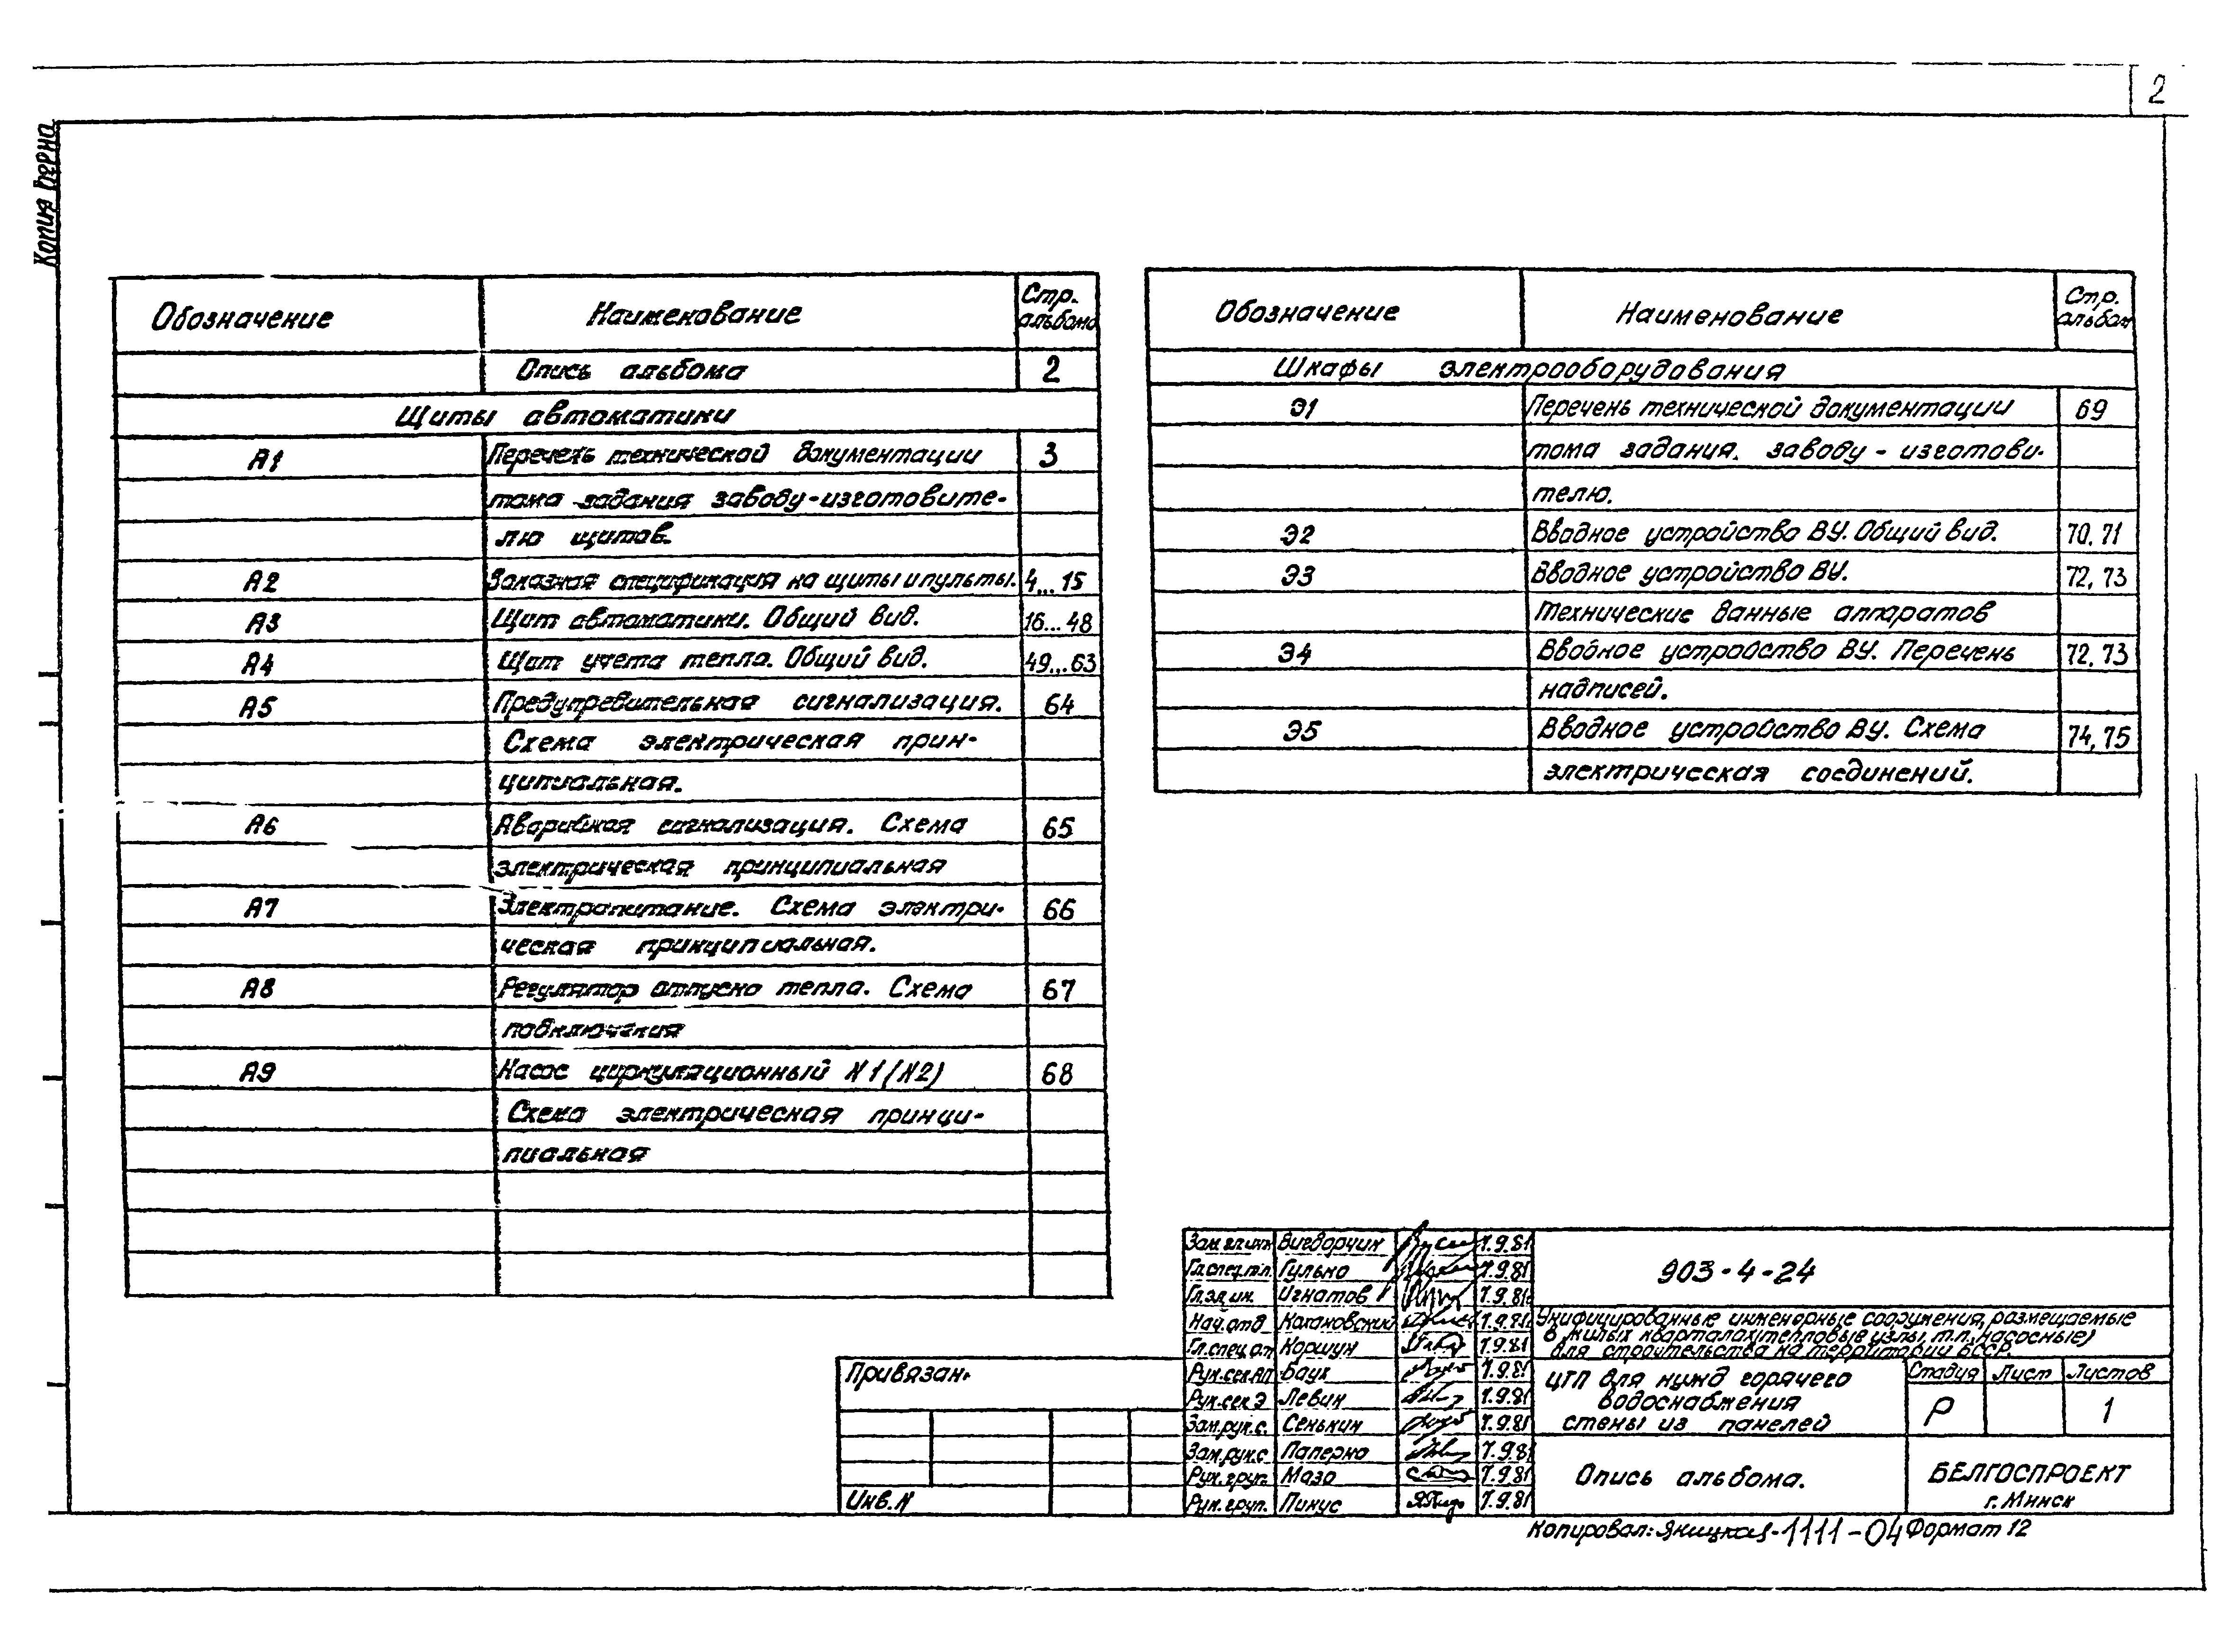 2
Копия верна
Обозначение Наименование Стр. альбома
Опись альбома 2
Щиты автоматики
А1 Перечень технической документации 3
тома задания заводу-изготовите-
лю щитов.
А2 Заказная спецификация на щиты и пульты. 4...15
А3 Щит автоматики. Общий вид. 16...48
А4 Щит учета тепла. Общий вид. 49...63
А5 Предупредительная сигнализация. 64
Схема электрическая прин-
ципиальная.
А6 Аварийная сигнализация. Схема 65
электрическая принципиальная
А7 Электропитание. Схема электри- 66
ческая принципиальная.
А8 Регулятор отпуска тепла. Схема 67
подключения
А9 Насос циркуляционный N1(N2) 68
Схема электрическая принци-
пиальная
Обозначение Наименование Стр. альбом
Шкафы электрооборудования
Э1 Перечень технической документации 69
тома задания. заводу-изготови-
телю.
Э2 Вводное устройство ВУ. Общий вид. 70,71
Э3 Вводное устройство ВУ. 72,73
Технические данные аппаратов
Э4 Вводное устройство ВУ. Перечень 72,73
надписей.
Э5 Вводное устройство ВУ. Схема 74,75
электрическая соединений.
Зам.гл.инж Вигдорчик 7.9.81
Гл.спец.т.п. Гулько 7.9.81
Гл.эл.ин. Игнатов 7.9.81
Нач.отд Кохановский 7.9.81
Гл.спец.от Коршун 7.9.81
Рук.сек.АП Баух 7.9.81
Рук.сек Э Левин 7.9.81
Зам.рук.с. Сенькин 7.9.81
Зам.рук.с Паперно 7.9.81
Рук.груп. Мазо 7.9.81
Рук.груп. Пинус 7.9.81
903-4-24
Унифицированные инженерные сооружения, размещаемые
в жилых кварталах(тепловые узлы, т.п., насосные)
для строительства на территории БССР.
ЦТП для нужд горячего
водоснабжения
стены из панелей
Стадия Лист Листов
Р 1
Опись альбома.
БЕЛГОСПРОЕКТ
г. Минск
Привязан.
Инв.N
Копировал: Яницкая-1111-04 Формат 12